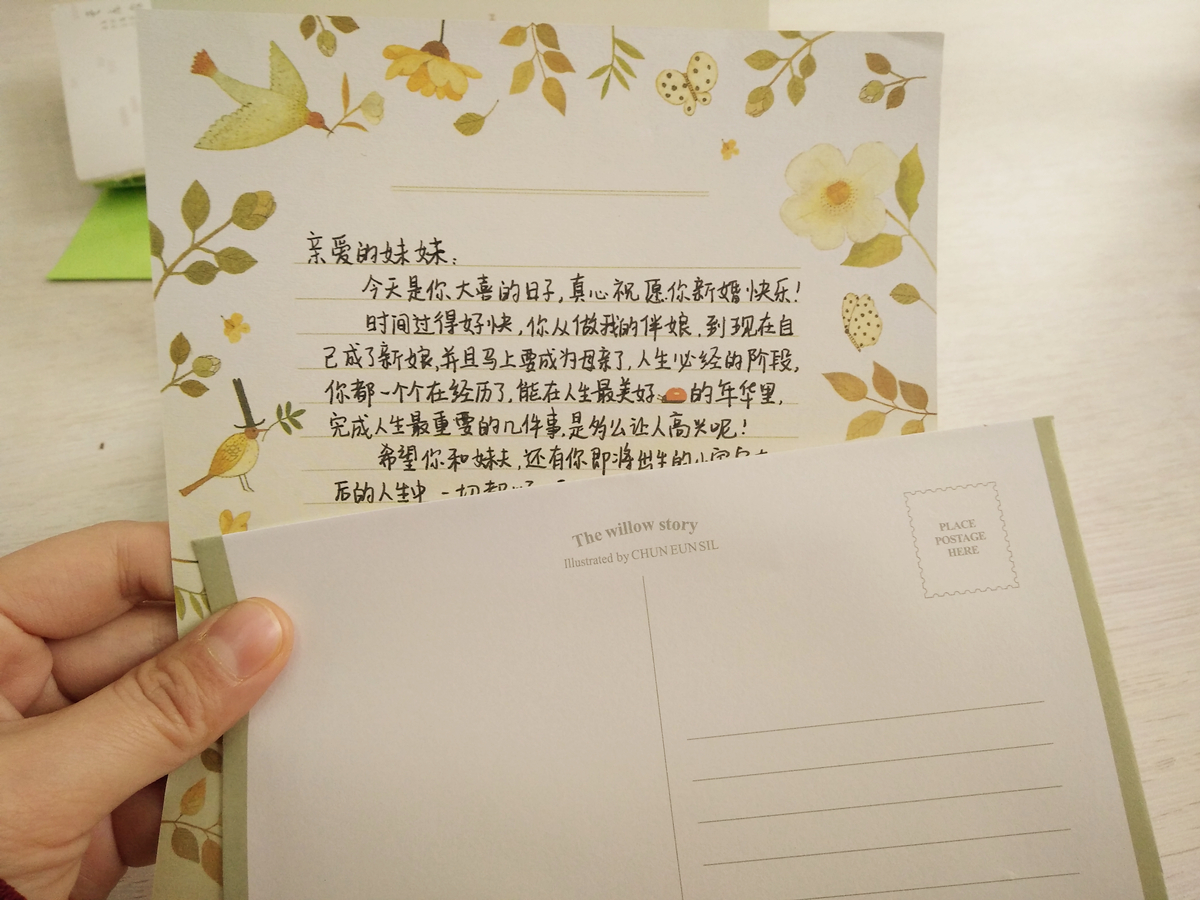 亲爱的妹妹：
今天是你大喜的日子，真心祝愿你新婚快乐！
时间过得好快，你从做我的伴娘，到现在自
己成了新娘，并且马上要成为母亲了，人生必经的阶段，
你都一个个在经历了，能在人生最美好的年华里，
完成人生最重要的几件事，是多么让人高兴呢！
希望你和妹夫，还有你即将出生的小宝
后的人生中，一切都
The willow story
Illustrated by CHUN EUN SIL
PLACE
POSTAGE
HERE